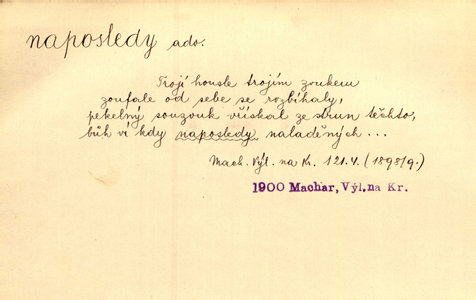 naposledy adv.
Trojí housle trojím zvukem
zoufale od sebe se rozbíhaly,
pekelný souzvuk vřískal ze strun těchto,
bůh ví kdy naposledy naladěných ...
Mach. Výl. na K. 121.V. (1898/9.)
1900 Machar, Výl. na Kr.